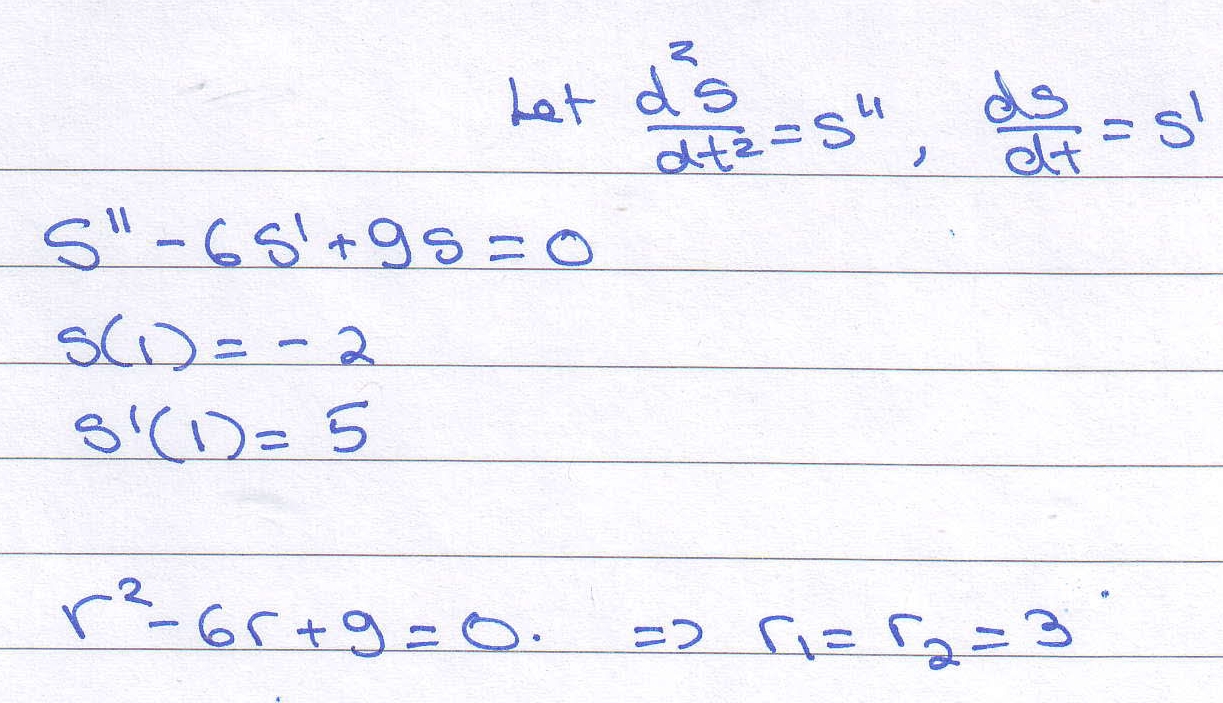 Let d²s/dt² = s'', ds/dt = s'
s'' - 6s' + 9s = 0
s(1) = - 2
s'(1) = 5
r² - 6r + 9 = 0. => r₁ = r₂ = 3